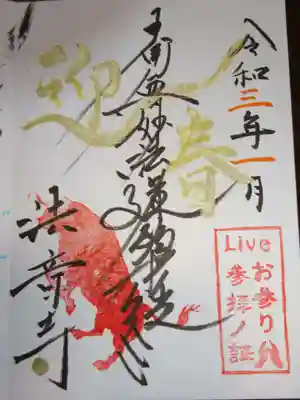 令和三年一月
迎春
南無妙法蓮華経
Live
お参り
参拝ノ証